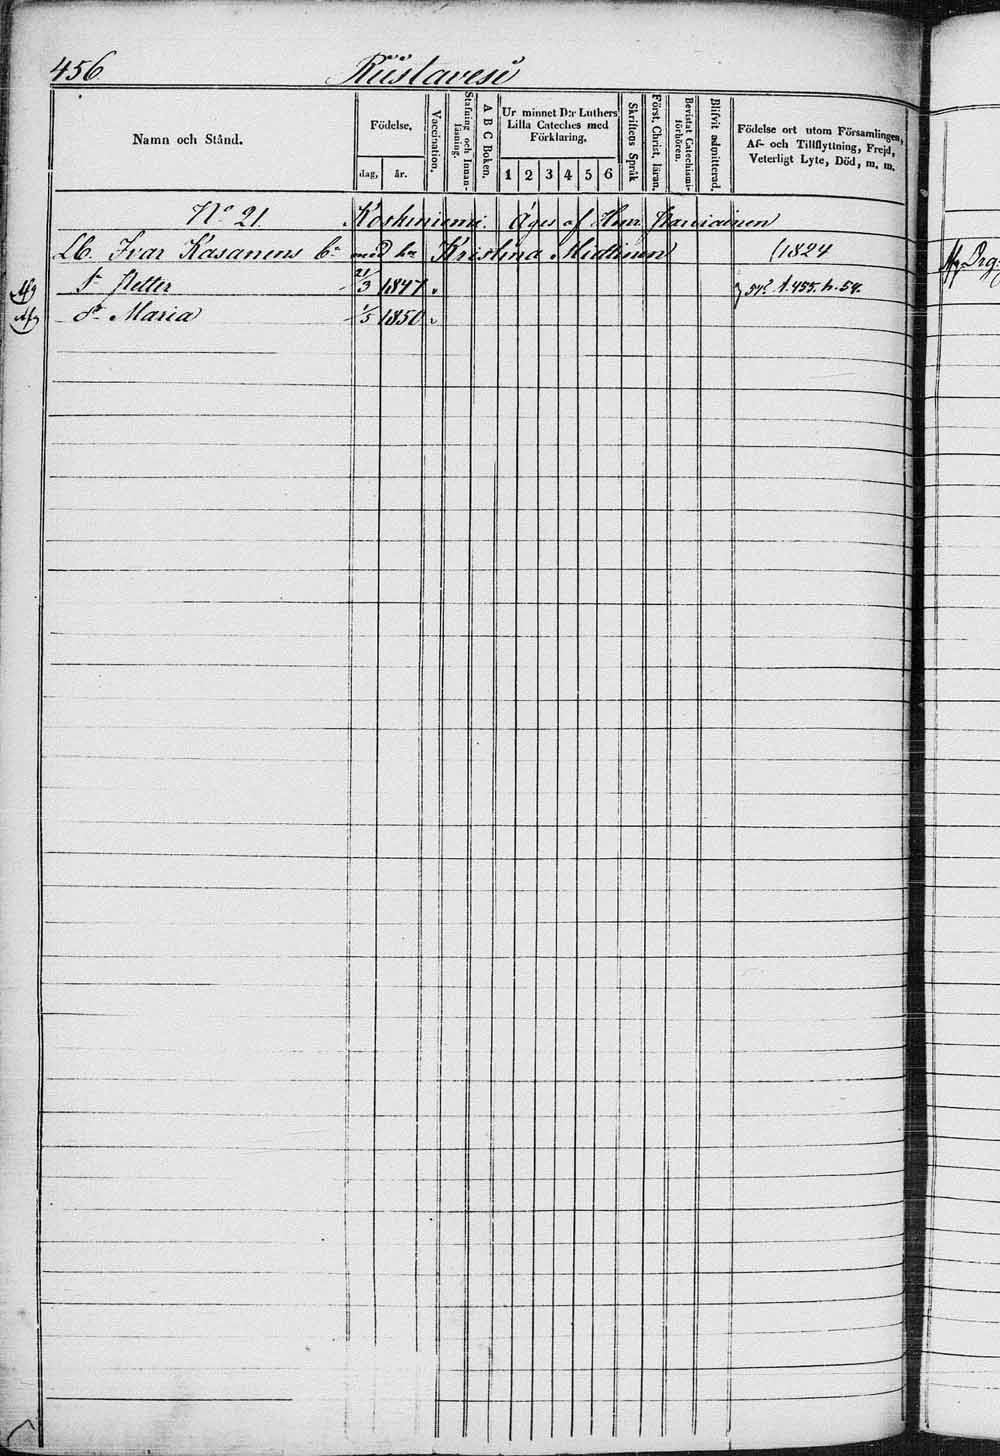 456 Kuslavesi
Namn och Stånd.
Födelse,
dag, år.
Vaccination.
Stafning och Innan-läsning.
A B C Boken.
Ur minnet D:r Luthers
Lilla Cateches med
Förklaring,
1 2 3 4 5 6
Skriftens Språk
Först. Christ. läran.
Bevistat Catechismi-förhören.
Blifvit admitterad.
Födelse ort utom Församlingen,
Af- och Tillflyttning, Frejd,
Veterligt Lyte, Död, m. m.
N:o 21. Koskiniemi. Äges af Henr.
Lb. Ivar Kasanens med Kristina Miettinen (1824
Petter 21/3 1847 455. 54.
Maria 1/5 1850